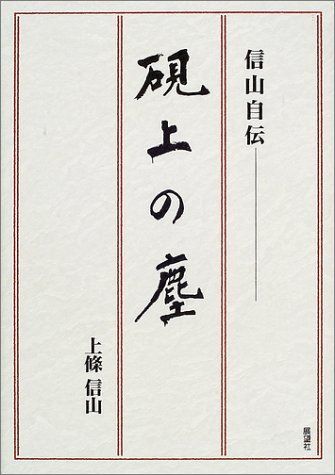 信山自伝
硯上の塵
上條信山
展望社